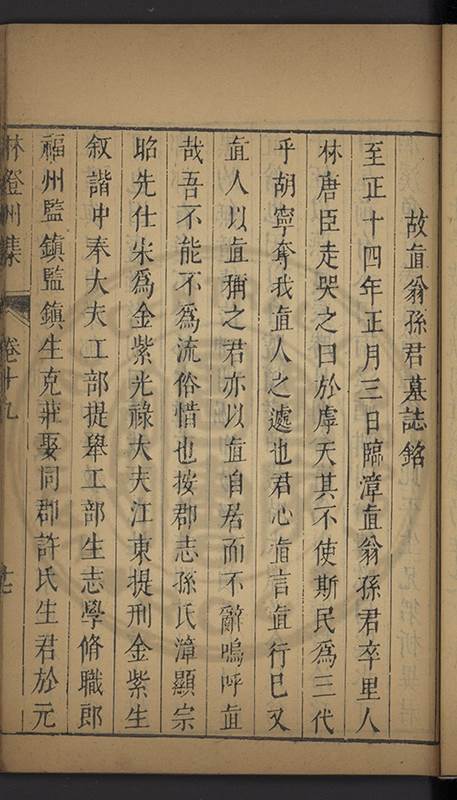 故直翁孫君墓誌銘
至正十四年正月三日臨漳直翁孫君卒里人
林唐臣走哭之曰於虖天其不使斯民爲三代
乎胡寧奪我直人之遽也君心直言直行已又
直人以直稱之君亦以直自居而不辭嗚呼直
哉吾不能不爲流俗惜也按郡志孫氏漳顯宗
昭先仕宋爲金紫光祿大夫江東提刑金紫生
叙諧中奉大夫工部提舉工部生志學脩職郎
福州監鎮監鎮生克莊娶同郡許氏生君於元
林登州集 卷十九 十七